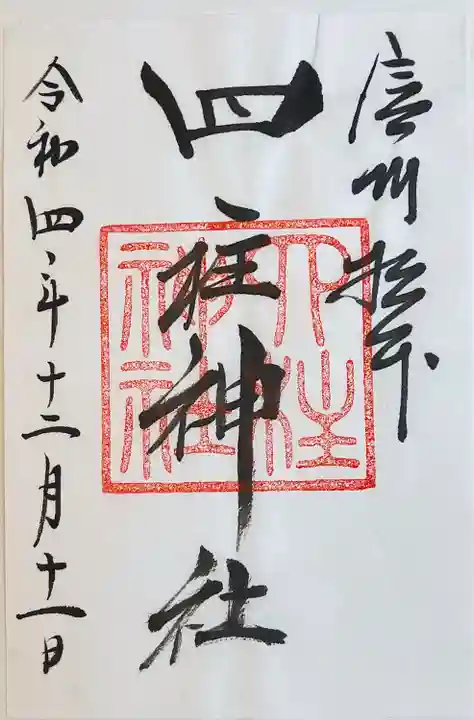 信州松本
四柱神社
四柱神社
令和四年十二月十一日